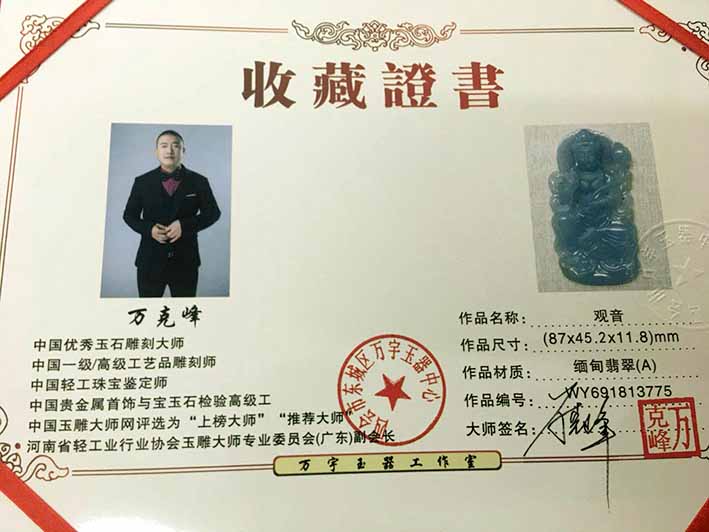 收藏證書
万克峰
中国优秀玉石雕刻大师
中国一级/高级工艺品雕刻师
中国轻工珠宝鉴定师
中国贵金属首饰与宝玉石检验高级工
中国玉雕大师网评选为“上榜大师”“推荐大师”
河南省轻工业行业协会玉雕大师专业委员会(广东)副会长
四会市东城区万宇玉器中心
作品名称: 观音
作品尺寸: (87x45.2x11.8)mm
作品材质: 缅甸翡翠(A)
作品编号: WY691813775
大师签名:
万克峰
万宇玉器工作室